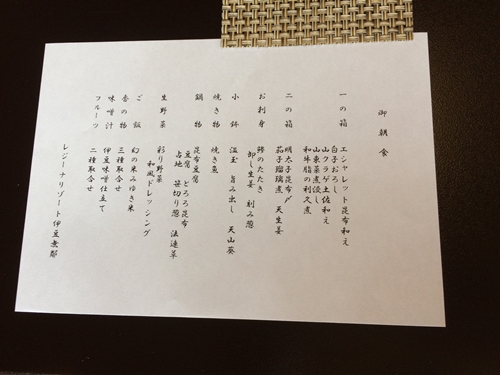 御朝食
一の箱 エシャレット昆布和え
白子おろし
山クラゲ土佐和え
山東菜煮浸し
和牛脂の利久煮
二の箱 明太子昆布〆
茄子瑠璃煮 天生姜
お刺身 鯵のたたき
卸し生姜 刻み葱
小鉢 温玉 旨み出し 天山葵
焼き物 焼き魚
鍋物 昆布豆腐
豆腐 とろろ昆布
占地 笹切り葱 法連草
生野菜 彩り野菜
和風ドレッシング
ご飯 幻の米みゆき米
香の物 三種取合せ
味噌汁 伊豆味噌仕立て
フルーツ 二種取合せ
レジーナリゾート伊豆無鄰